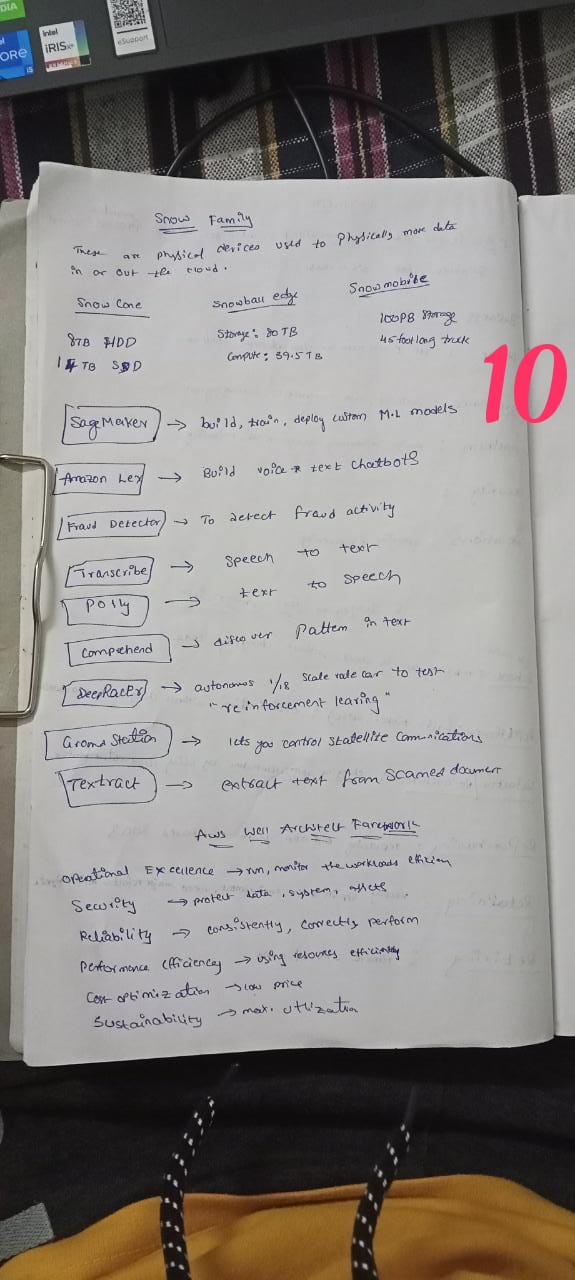 intel
IRIS Xe
CORE
i5
eSupport
Snow Family
These are physical devices used to Physically move data
in or out the cloud.
Snow Cone
8TB HDD
14 TB SSD
Snowball edge
Storage: 80 TB
Compute: 39.5 TB
Snowmobile
100PB Storage
45 foot long truck
10
SageMaker → build, train, deploy custom M.L models
Amazon Lex → Build voice & text Chatbots
Fraud Detector → To detect fraud activity
Transcribe → Speech to text
Polly → text to speech
Comprehend → discover Pattern in text
DeepRacer → autonomos 1/18 scale rale car to test
"reinforcement learing"
Ground Station → lets you control Statellite Comunications
Textract → extract text from scanned document
Aws Well Architect Famework
Operational Excellence → run, monitor the workloads
Security → protect data, system,
Reliability → consistently, correctly perform
Performence Efficiency → using resources efficiently
Cost optimization → low price
Sustainability → max. utlization